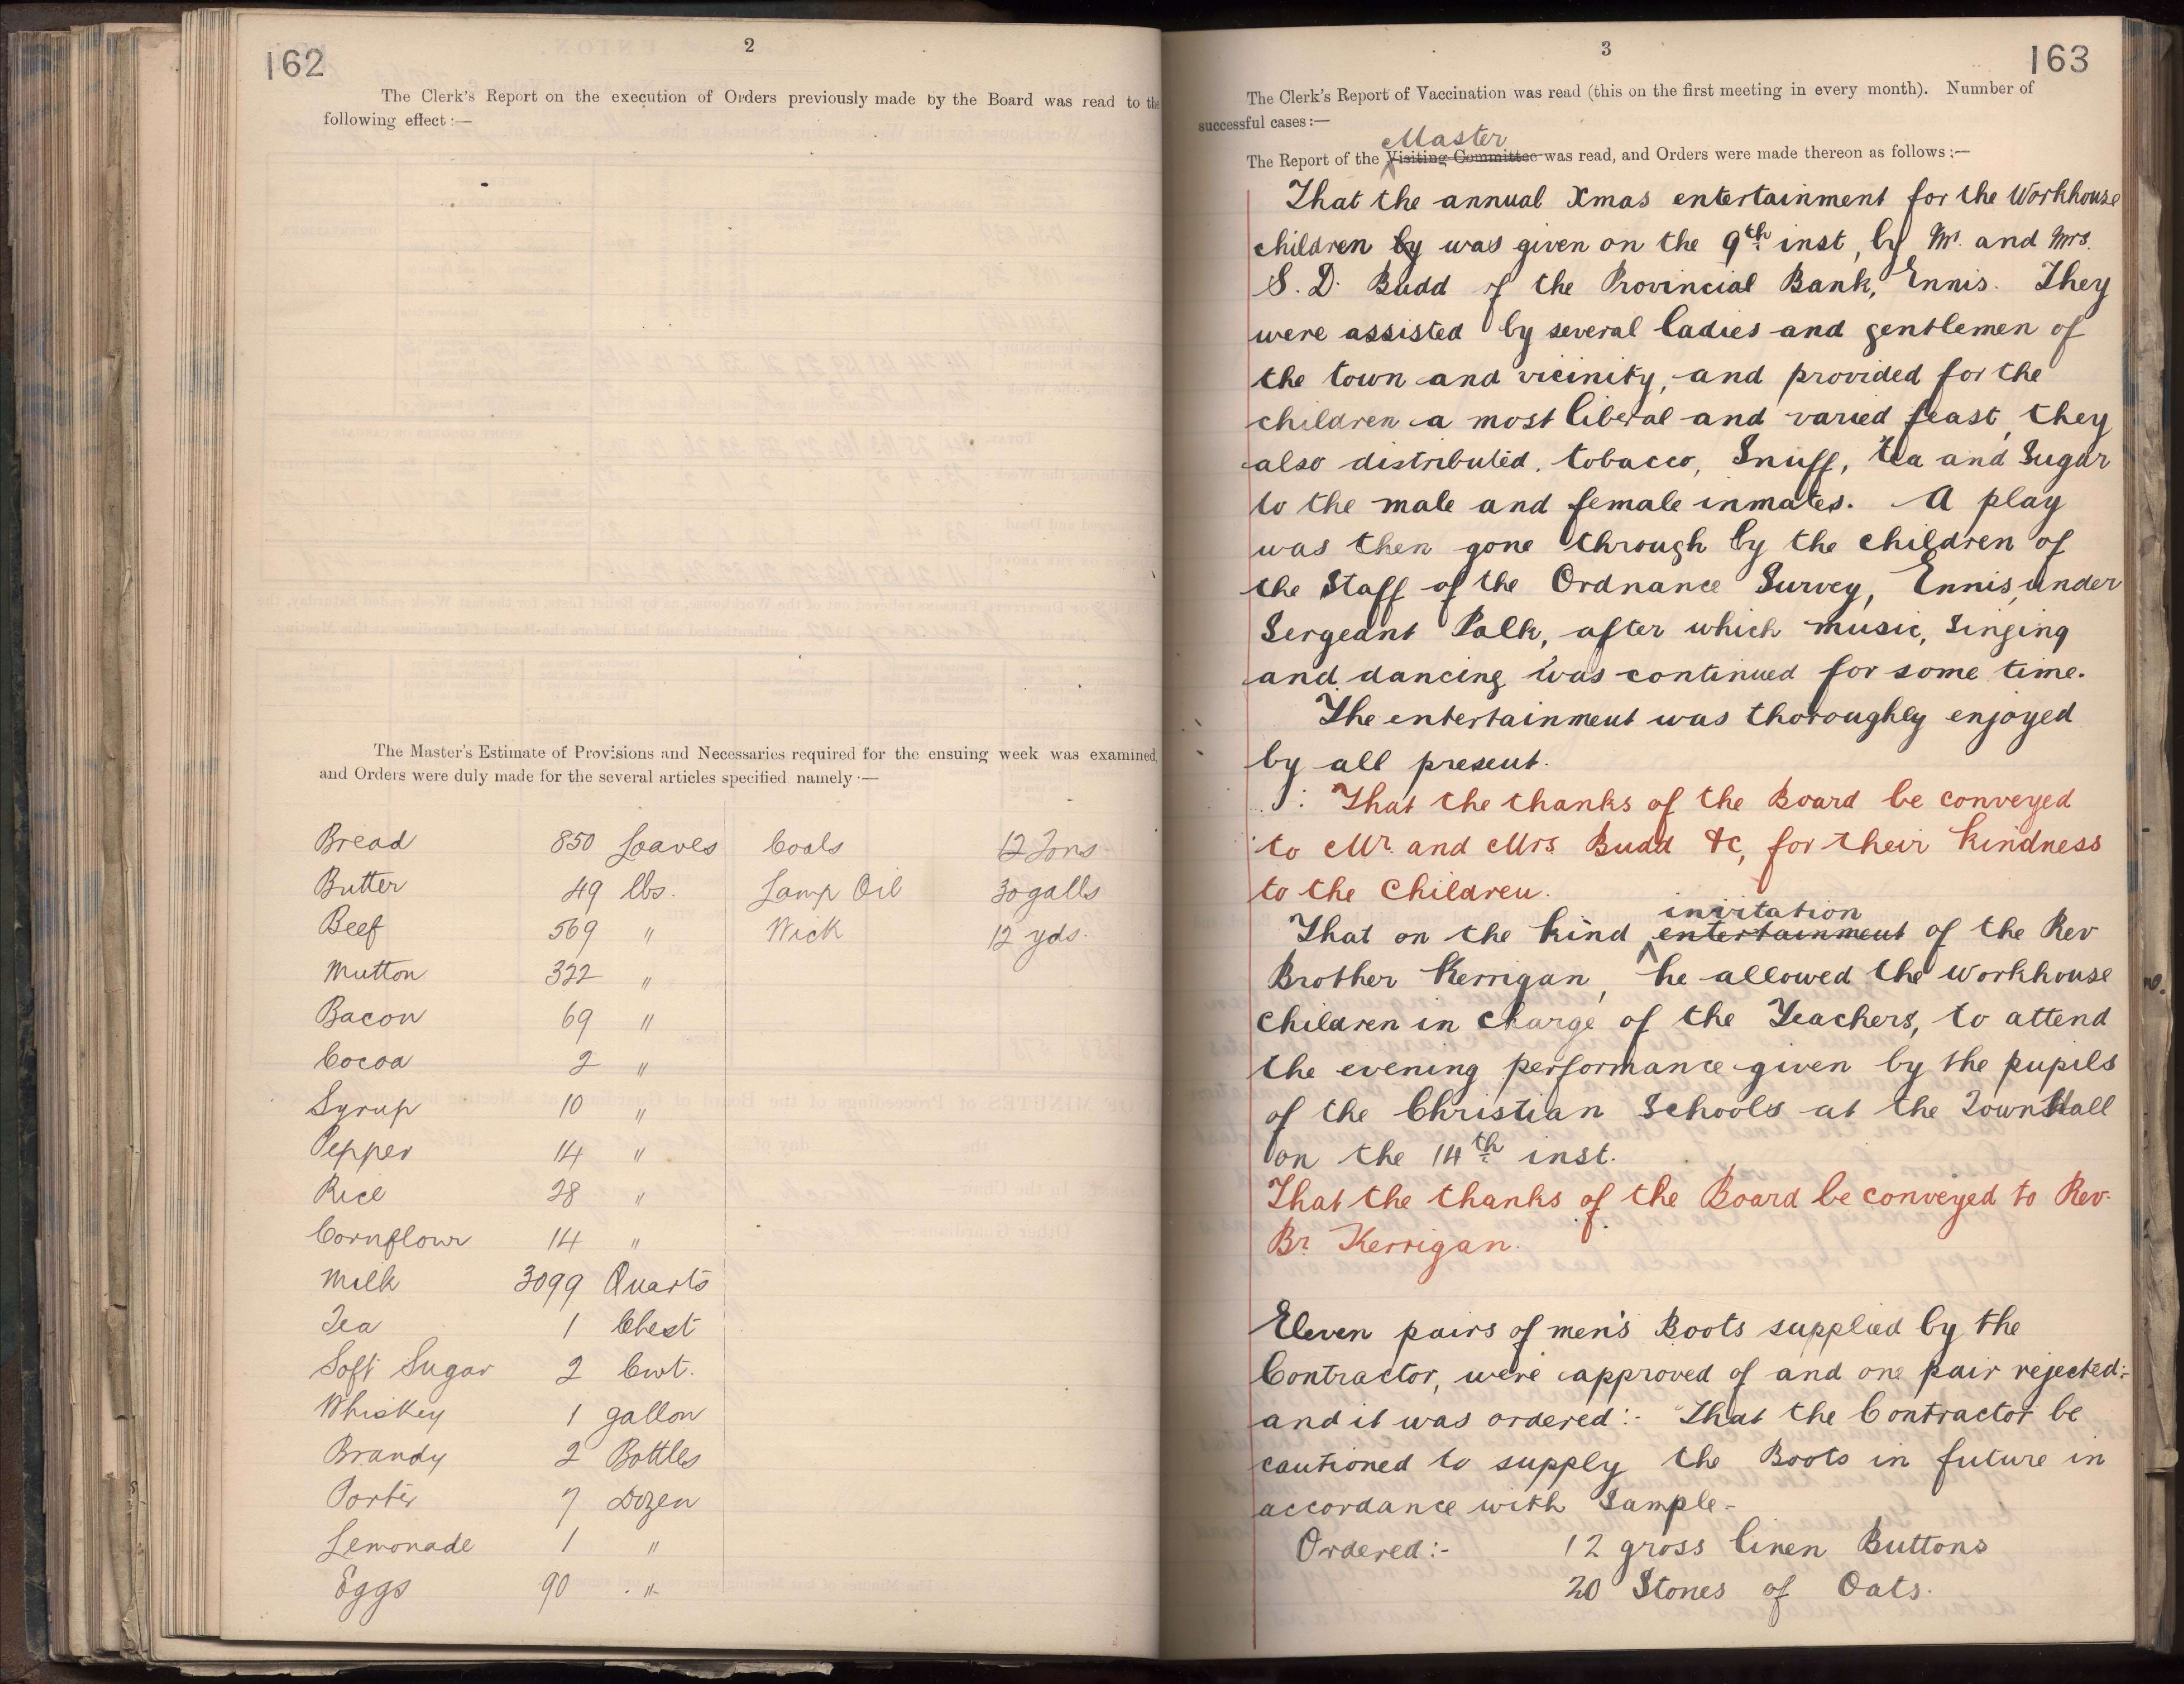 162
2
The Clerk's Report on the execution of Orders previously made by the Board was read to the
following effect :—
The Master's Estimate of Provisions and Necessaries required for the ensuing week was examined,
and Orders were duly made for the several articles specified namely :—
Bread 850 Loaves Coals 12 Tons
Butter 49 lbs. Lamp Oil 30 galls
Beef 569 " Wick 12 yds.
Mutton 322 "
Bacon 69 "
Cocoa 2 "
Syrup 10 "
Pepper 14 "
Rice 28 "
Cornflour 14 "
Milk 3099 Quarts
Tea 1 Chest
Soft Sugar 2 Cwt.
Whiskey 1 gallon
Brandy 2 Bottles
Porter 7 Dozen
Lemonade 1 "
Eggs 90 "
3
163
The Clerk's Report of Vaccination was read (this on the first meeting in every month). Number of
successful cases :—
Master
The Report of the Visiting Committee was read, and Orders were made thereon as follows :—
That the annual Xmas entertainment for the Workhouse
children by was given on the 9th inst, by Mr. and Mrs.
S. D. Budd of the Provincial Bank, Ennis. They
were assisted by several ladies and gentlemen of
the town and vicinity, and provided for the
children a most liberal and varied feast, they
also distributed, tobacco, Snuff, tea and Sugar
to the male and female inmates. A play
was then gone through by the children of
the Staff of the Ordnance Survey, Ennis, under
Sergeant Palk, after which music, Singing
and dancing was continued for some time.
The entertainment was thoroughly enjoyed
by all present.
: That the thanks of the Board be conveyed
to Mr. and Mrs. Budd &c, for their kindness
to the Children.
invitation
That on the kind entertainment of the Rev
Brother Kerrigan, he allowed the workhouse
children in charge of the Teachers, to attend
the evening performance given by the pupils
of the Christian Schools at the Town Hall
on the 14th inst.
That the thanks of the Board be conveyed to Rev.
Br. Kerrigan.
Eleven pairs of men's Boots supplied by the
Contractor, were approved of and one pair rejected:-
and it was ordered :- That the Contractor be
cautioned to supply the Boots in future in
accordance with Sample-
Ordered :- 12 gross linen Buttons
20 Stones of Oats.